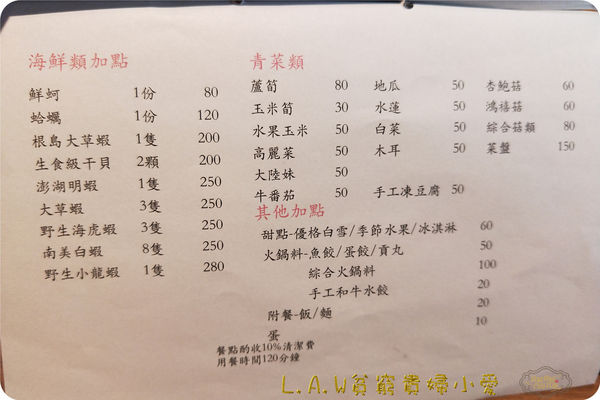 海鮮類加點
鮮蚵 1份 80
蛤蠣 1份 120
根島大草蝦 1隻 200
生食級干貝 2顆 200
澎湖明蝦 1隻 250
大草蝦 3隻 250
野生海虎蝦 3隻 250
南美白蝦 8隻 250
野生小龍蝦 1隻 280
青菜類
蘆筍 80 地瓜 50 杏鮑菇 60
玉米筍 30 水蓮 50 鴻禧菇 60
水果玉米 50 白菜 50 綜合菇類 80
高麗菜 50 木耳 50 菜盤 150
大陸妹 50
牛番茄 50 手工凍豆腐 50
其他加點
甜點-優格白雪/季節水果/冰淇淋 60
火鍋料-魚餃/蛋餃/貢丸 50
綜合火鍋料 100
手工和牛水餃 20
附餐-飯/麵 20
蛋 10
餐點酌收10%清潔費
用餐時間120分鐘
L.A.W貧窮貴婦小愛